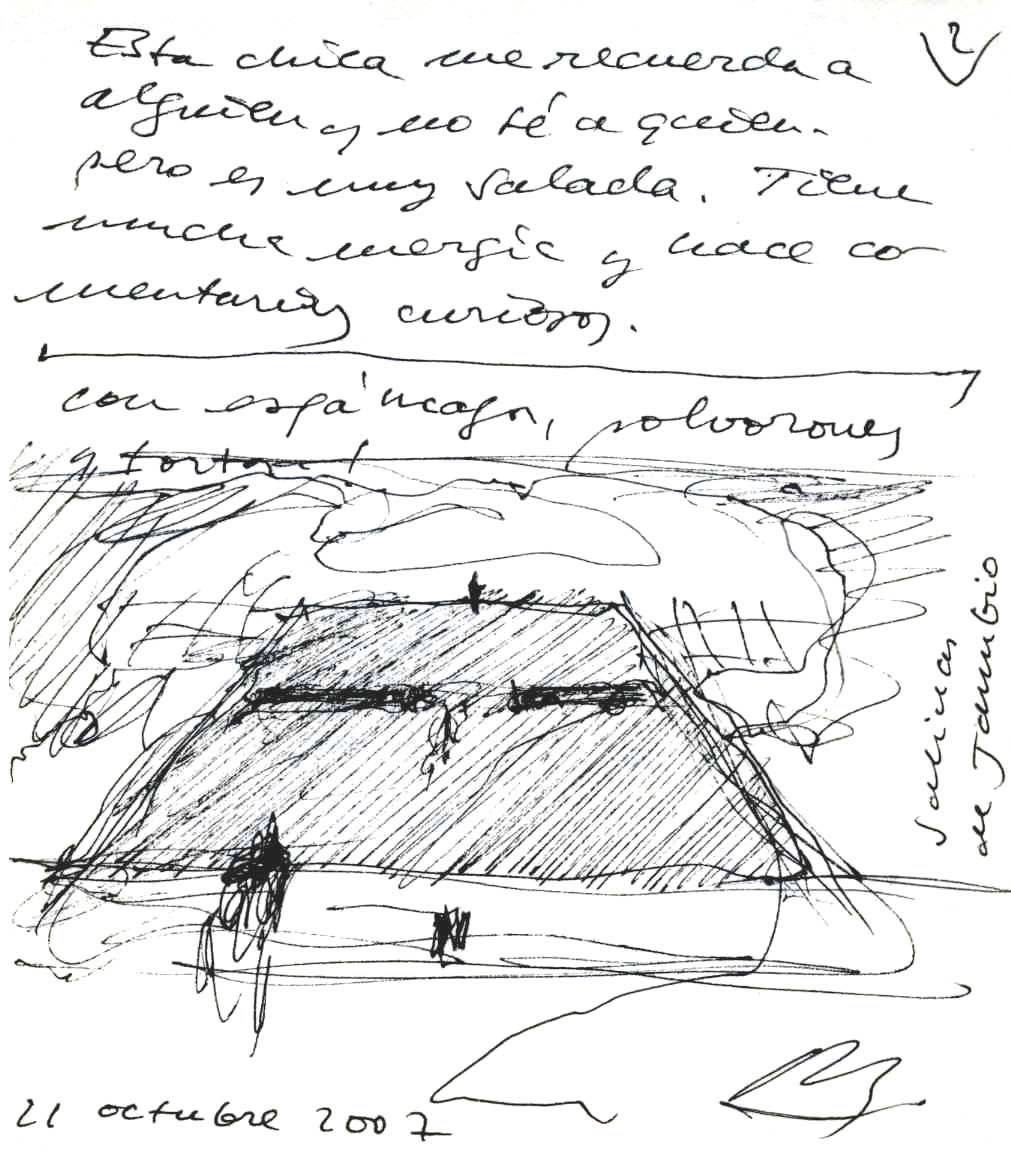 2
Esta chica me recuerda a
alguien y no sé a quien.
pero es muy salada. Tiene
mucha energía y hace co
mentarios curiosos.
con espárragos, polvorones
y tortas!
Salinas
de Janubio
21 octubre 2007